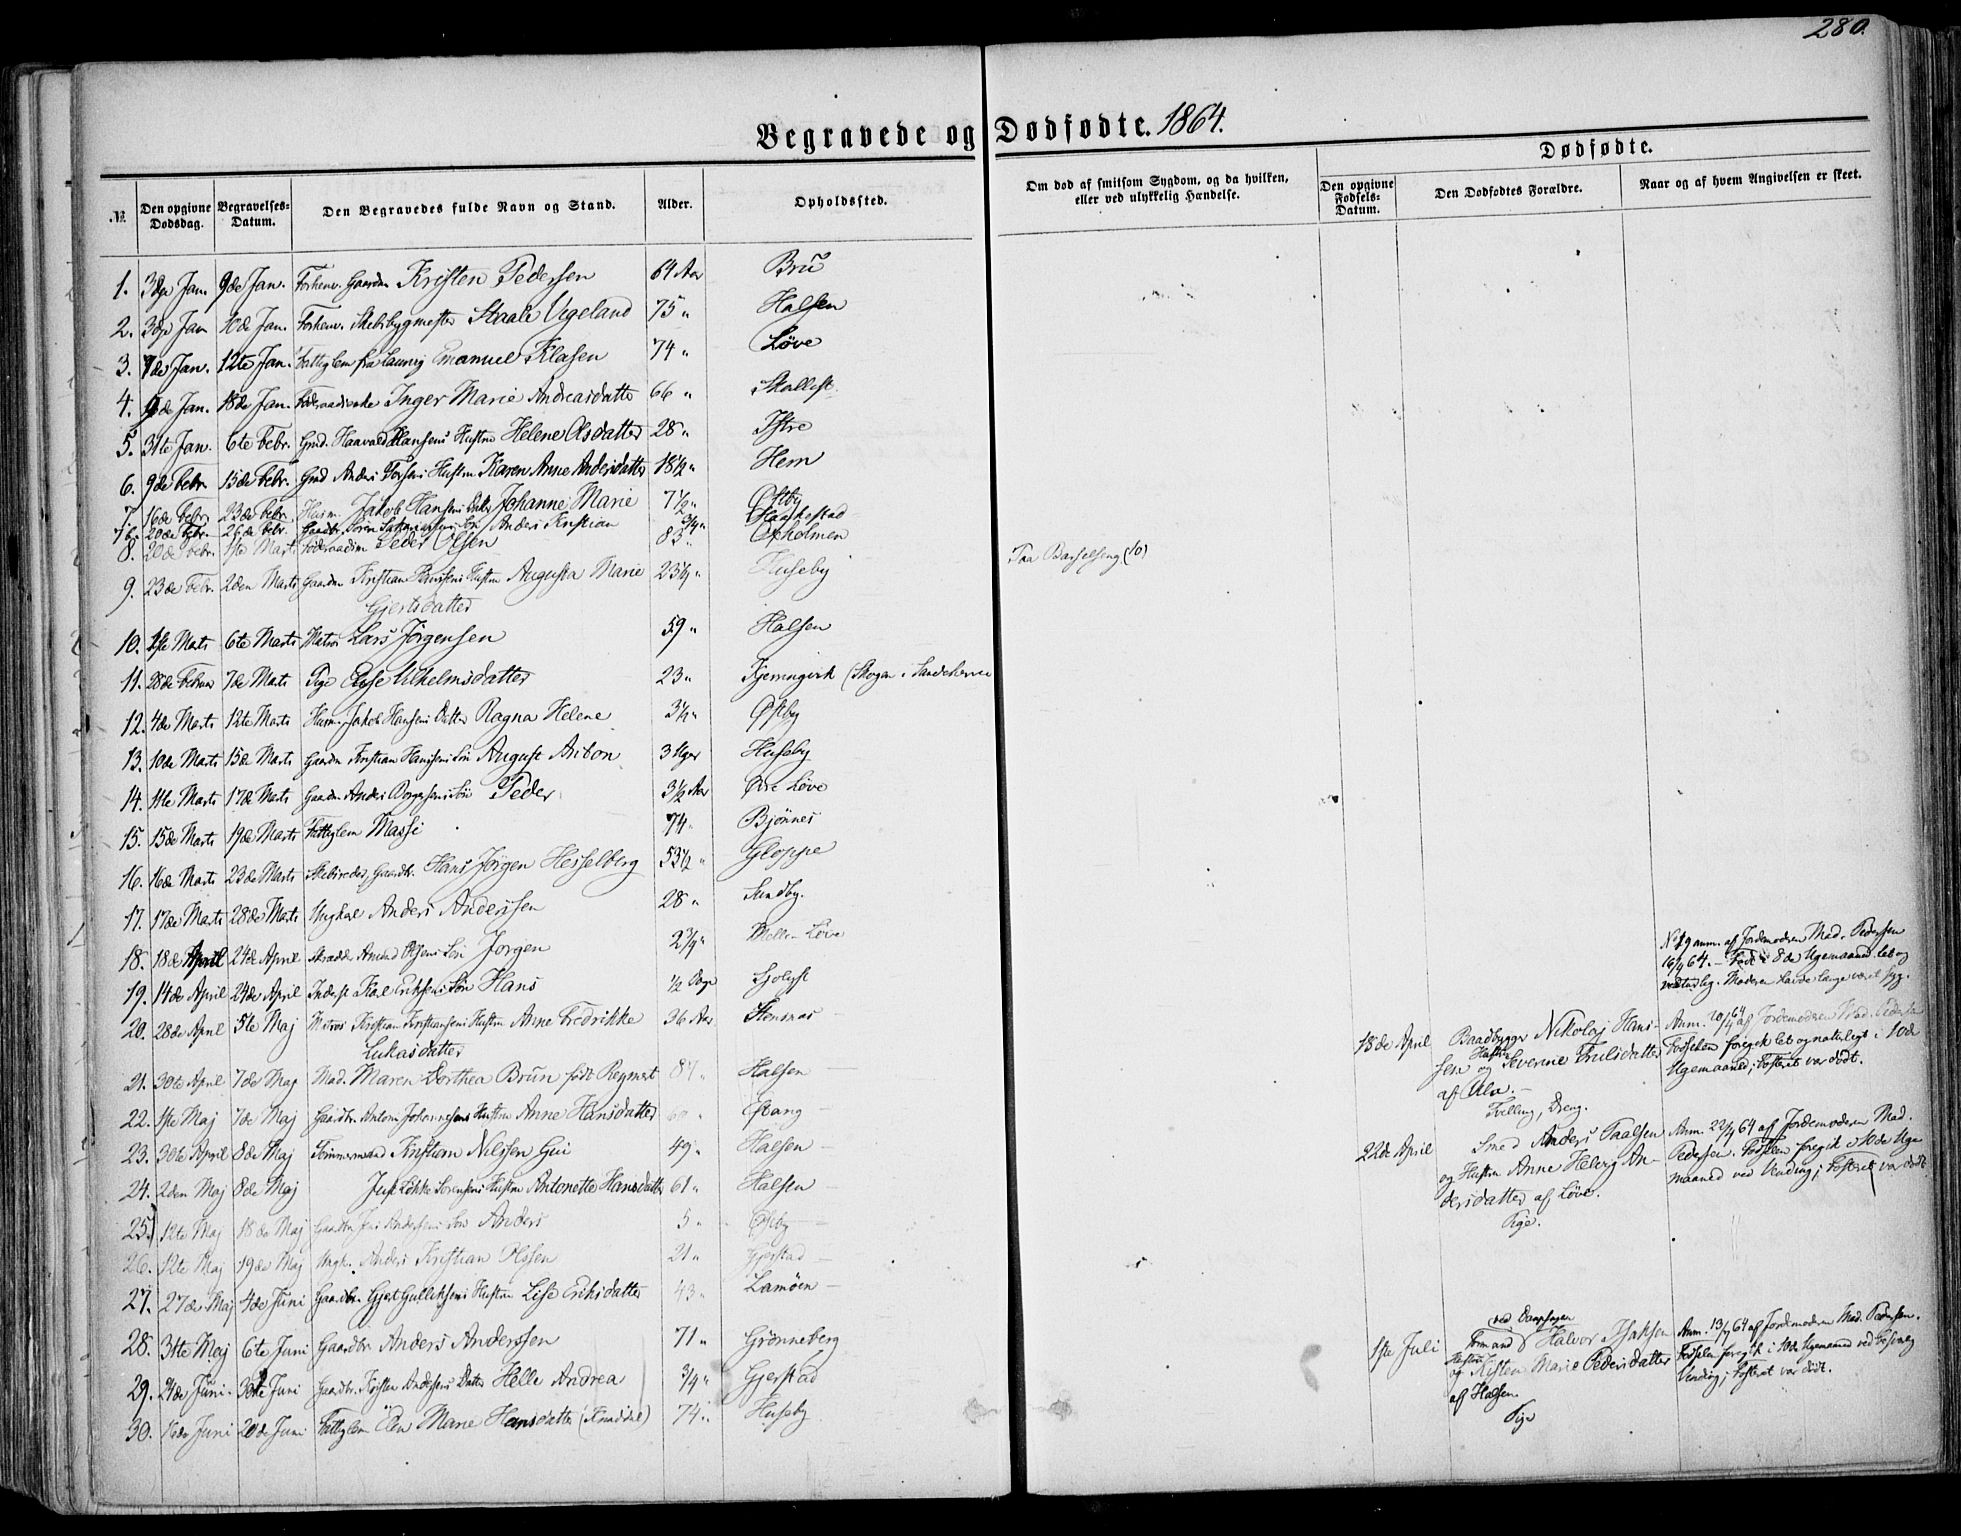 280.
Begravede og Dødfødte. 1864.
№ Den opgivne Dødsdag. Begravelses-Datum. Den Begravedes fulde Navn og Stand. Alder. Opholdssted. Om død af smitsom Sygdom, og da hvilken, eller ved ulykkelig Hændelse. Dødfødte. Den opgivne Fødsels-Datum. Den Dødfødtes Forældre. Naar og af hvem Angivelsen er skeet.
1. 3die Jan. 9de Jan. Forhenv. Gaardm Kristen Pedersen 64 Aar Bru
2. 3die Jan 10de Jan. Forhenv. Skibsbygmester Staale Vigeland 75 " Halsen
3. 7de Jan. 12te Jan. Fattiglem fra Laurvig Emanuel Klasen 74 " Løve
4. Jan. 18de Jan. Føderaadsenke Inger Marie Andreasdatter 66 " Skallist.
5. 31te Jan. 6te Febr. Gmd. Haavald Hansens Hustru Helene Olsdatter 28 " Istre
6. 9de Febr. 13de Febr. Gmd Anders Hustru Karen Anne Andersdatter 18½ " Hem
7. 16de Febr. 23de Febr. Husm. Jakob Hansens Datter Johanne Marie 7½ " Østby
7b. 20de Febr. 26de Febr. Gaardbr. Søren Søn Anders Kristian ¾ " Haakestad
8. 20de Febr. 1ste Mart. Føderaadsm Peder Olsen 83 " Oxholmen
9. 23de Febr. 2den Marts Gaardm Kristian Hansens Hustru Augusta Marie 23¼ " Huseby Paa Barselseng (10)
Gjertsdatter
10. 1ste Marts 6te Marts Matros Lars Jørgensen 59 " Halsen
11. 28de Februar 7de Marts Pige Else Vilhelmsdatter 23 " Kjerringvik (Skogan i Sandeherred
12. 4de Marts 12te Marts Husm. Jakob Hansens Datter Ragna Helene 3¼ " Østby
13. 10de Marts 15de Marts Gaardm Kristian Hansens Søn August Anton 3 Uger Huseby
14. 11te Marts 17de Marts Gaardm Anders Borgersens Søn Peder 3½ Aar Øvre Løve
15. 15de Marts 19de Marts Fattiglem Massi 74 " Bjønnes
16. 16de Marts 23de Marts Skibsreder, Gaardbr. Hans Jørgen Hesselberg 53½ " Gloppe
17. 17de Marts 28de Marts Ungkarl Anders Anderssen 28 " Sundby.
18. 18de April 24de April Skrædder Amund Olsens Søn Jørgen 2¾ " Mellem Løve
19. 14de April 24de April Inderst Karl Eriksens Søn Hans ½ Dage Solyst
20. 28de April 5te Maj Matros Kristian Kristiansens Hustru Anne Fredrikke 36 Aar Stensnæs
Lukasdatter
21. 30te April 7de Maj Mad. Maren Dorthea Brun født Regmert 87 " Halsen
22. 1ste Maj 7de Maj Gaardbr. Anton Johannesens Hustru Anne Hansdatter 60 " Østang
23. 30te April 8de Maj Tømmermand Kristian Nilssen Gui 49 " Halsen
24. 2den Maj 8de Maj Just Løkke Sørensens Hustru Antonette Hansdatter 61 " Halsen
25. 12te Maj 18de Maj Gaardbr Jens Andersens Søn Anders 5 " Østby
26. 12te Maj 19de Maj Ungk. Anders Kristian Olssen 21 " Gjerstad
27. 27de Maj 4de Juni Gaardbr. Gjert Gulliksens Hustru Lise Eriksdatter 43 " Lamøen
28. 31te Maj 6te Juni Gaardbr Anders Anderssen 71 " Grønneberg
29. 24de Juni. 30te Juni Gaardbr. Kristen Andersens Datter Helle Andrea ¾ " Gjerstad
30. 16de Juni 20de Juni Fattiglem Elen Marie Hansdatter (Knaddal) 74 " Huseby
No. 19 anm. af Jordemoderen Mad. Pedersen
16/4 64. – Født i 8de Ugemaaned let og
naturlig. Moderen havde længe været syg.
18de April Baadbygger Nikolaj Hans-
sen og Hustru Severine Truls​datter
af Ula. –
Tvilling, Dreng.
Anm. 20/4 64 af Jordemoderen Mad. Pedersen
Fødselen foregik let og naturligt i 10de
Ugemaaned; Fosteret var dødt.
22de April Smed Anders Paalsen
og Hustru Anne Helvig An-
dersdatter af Løve.
Pige.
Anm. 22/4 64 af Jordemoderen Mad.
Pedersen. Fødselen foregik i 10de Uge
maaned ved Vending; Fosteret var dødt
1ste Juli
Formand Halvor Isaksen
og Hustru Kisten Marie Pedersdatter
af Halsen.
Pige
Anm. 13/7 64 af Jordemoderen Mad. Pedersen.
Fødselen foregik i 10de Ugemaaned ved
Vending; Fosteret var dødt.